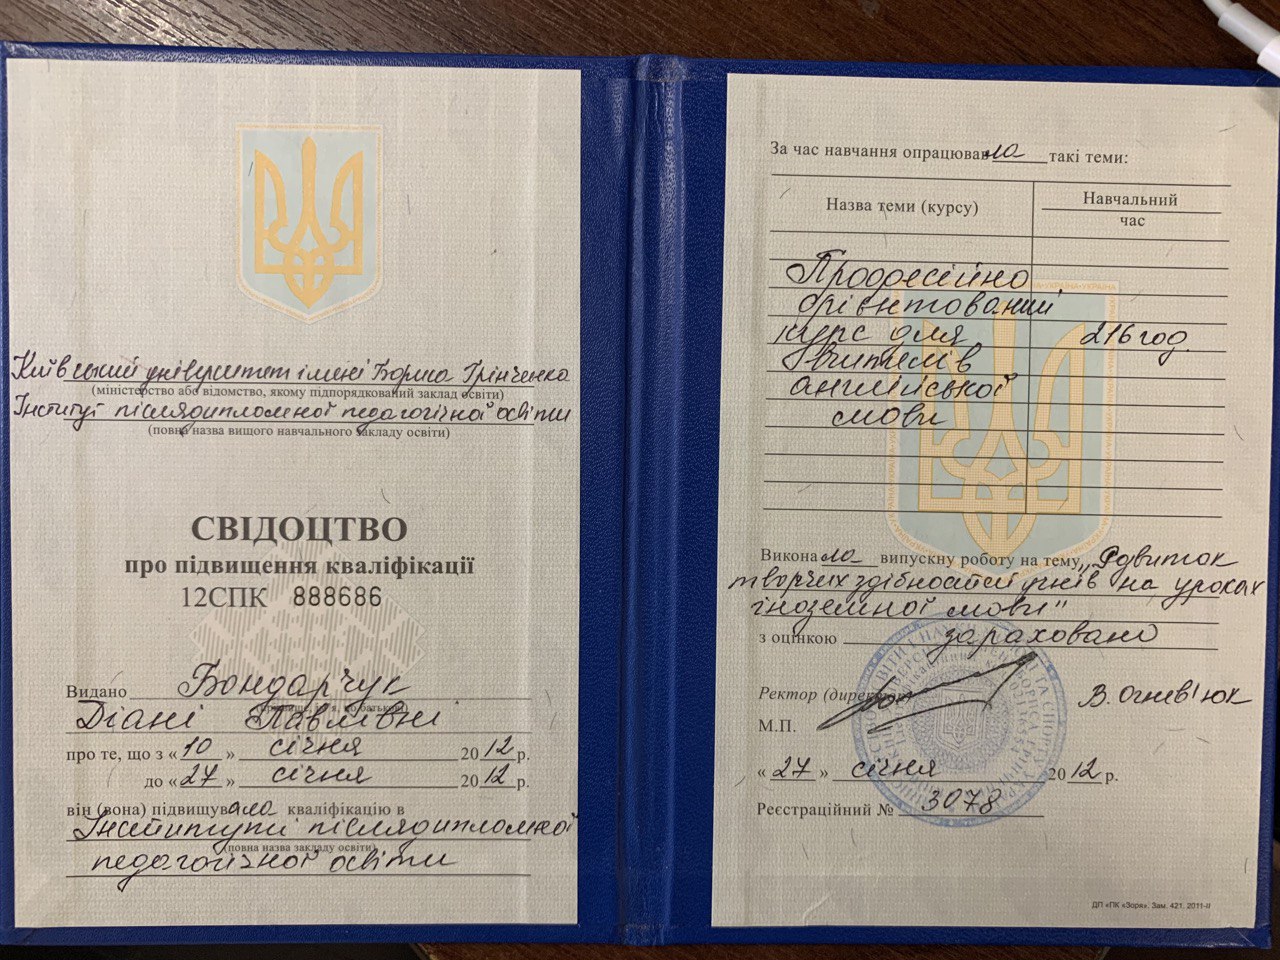 Київський університет імені Бориса Грінченка
(міністерство або відомство, якому підпорядкований заклад освіти)
Інститут післядипломної педагогічної освіти
(повна назва вищого навчального закладу освіти)
СВІДОЦТВО
про підвищення кваліфікації
12СПК 888686
Видано Бондарчук
(прізвище, ім'я, по батькові)
Діані Павлівні
про те, що з «10» січня 2012 р.
до «27» січня 2012 р.
він (вона) підвищувала кваліфікацію в
Інституті післядипломної
(повна назва закладу освіти)
педагогічної освіти
За час навчання опрацювала такі теми:
Назва теми (курсу)
Навчальний
час
Професійно
орієнтований
курс для 216 год.
вчителів
англійської
мови
Виконала випускну роботу на тему „Розвиток
творчих здібностей учнів на уроках
іноземної мови"
з оцінкою зараховано
Ректор (директор) В. Огнев'юк
М.П.
«27» січня 2012 р.
Реєстраційний № 3078
ДП «ПК «Зоря». Зам. 421. 2011-ІІ